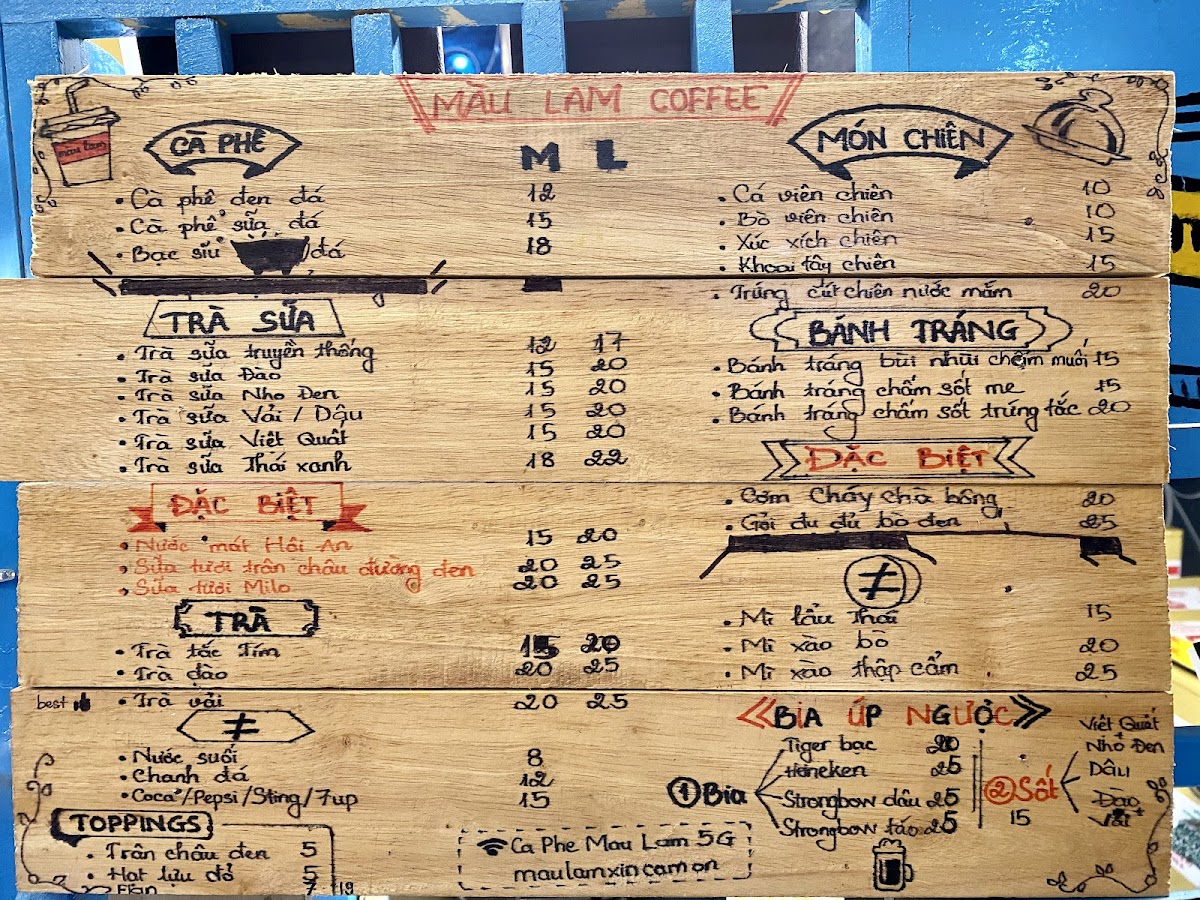 MÀU LAM COFFEE
màu lam
CÀ PHÊ
M L
• Cà phê đen đá 12
• Cà phê sữa đá 15
• Bạc sỉu đá 18
TRÀ SỮA
• Trà sữa truyền thống 12 17
• Trà sữa Đào 15 20
• Trà sữa Nho Đen 15 20
• Trà sữa Vải / Dâu 15 20
• Trà sữa Việt Quất 15 20
• Trà sữa Thái xanh 18 22
ĐẶC BIỆT
• Nước mát Hội An 15 20
• Sữa tươi trân châu đường đen 20 25
• Sữa tươi Milo 20 25
TRÀ
• Trà tắc Tím 15 20
• Trà đào 20 25
best • Trà vải 20 25
≠
• Nước suối 8
• Chanh đá 12
• Coca/Pepsi/Sting/7up 15
TOPPINGS
• Trân châu đen 5
• Hạt lựu đỏ 5
Flan 7
MÓN CHIÊN
• Cá viên chiên 10
• Bò viên chiên 10
• Xúc xích chiên 15
• Khoai tây chiên 15
• Trứng cút chiên nước mắm 20
BÁNH TRÁNG
• Bánh tráng bùi nhùi chấm muối 15
• Bánh tráng chấm sốt me 15
• Bánh tráng chấm sốt trứng tắc 20
ĐẶC BIỆT
• Cơm cháy chà bông 20
• Gỏi đu đủ bò đen 25
≠
• Mì lẩu Thái 15
• Mì xào bò 20
• Mì xào thập cẩm 25
BIA ÚP NGƯỢC
① Bia
Tiger bạc 20
Heneken 25
Strongbow dâu 25
Strongbow táo 25
② Sốt
15
Việt Quất
+
Nho Đen
Dâu
Đào
+
Vải
Ca Phe Mau Lam 5G
maulamxincamon